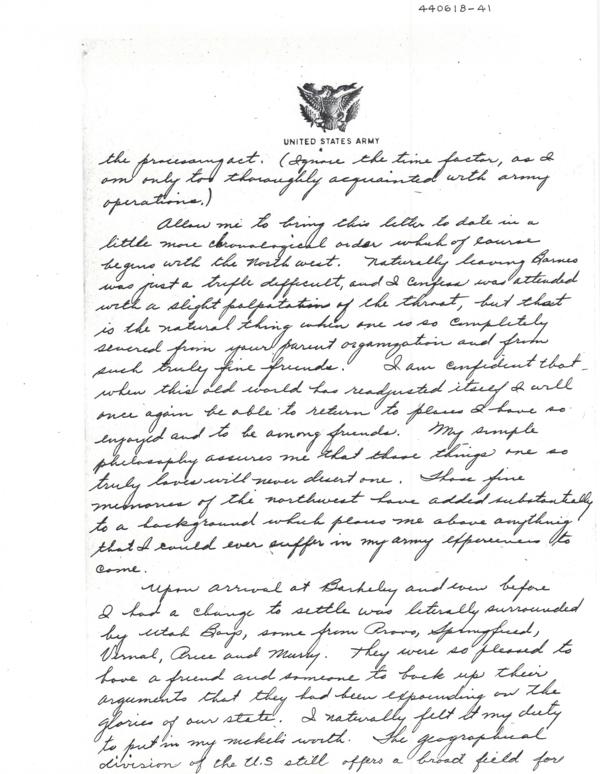 440618-41
UNITED STATES ARMY
the processing act. (Ignore the time factor, as I
am only too thoroughly acquainted with army
operations.)
Allow me to bring this letter to date in a
little more chronological order which of course
begins with the Northwest. Naturally leaving Barnes
was just a trifle difficult, and I confess was attended
with a slight palpatation of the throat, but that
is the natural thing when one is so completely
severed from your parent organization and from
such truly fine friends. I am confident that
when this old world has readjusted itself I will
once again be able to return to places I have so
enjoyed and to be among friends. My simple
philosophy assures me that those things one so
truly loves will never desert one. Those fine
memories of the northwest have added substantially
to a background which places me above anything
that I could ever suffer in my army experiences to
come.
Upon arrival at Barkeley and even before
I had a change to settle was literally surrounded
by Utah Boys, some from Provo, Springfield,
Vernal, Price and Murry. They were so pleased to
have a friend and someone to back up their
arguments that they had been expounding on the
glories of our state. I naturally felt it my duty
to put in my nickels worth. The geographical
division of the U.S still offers a broad field for